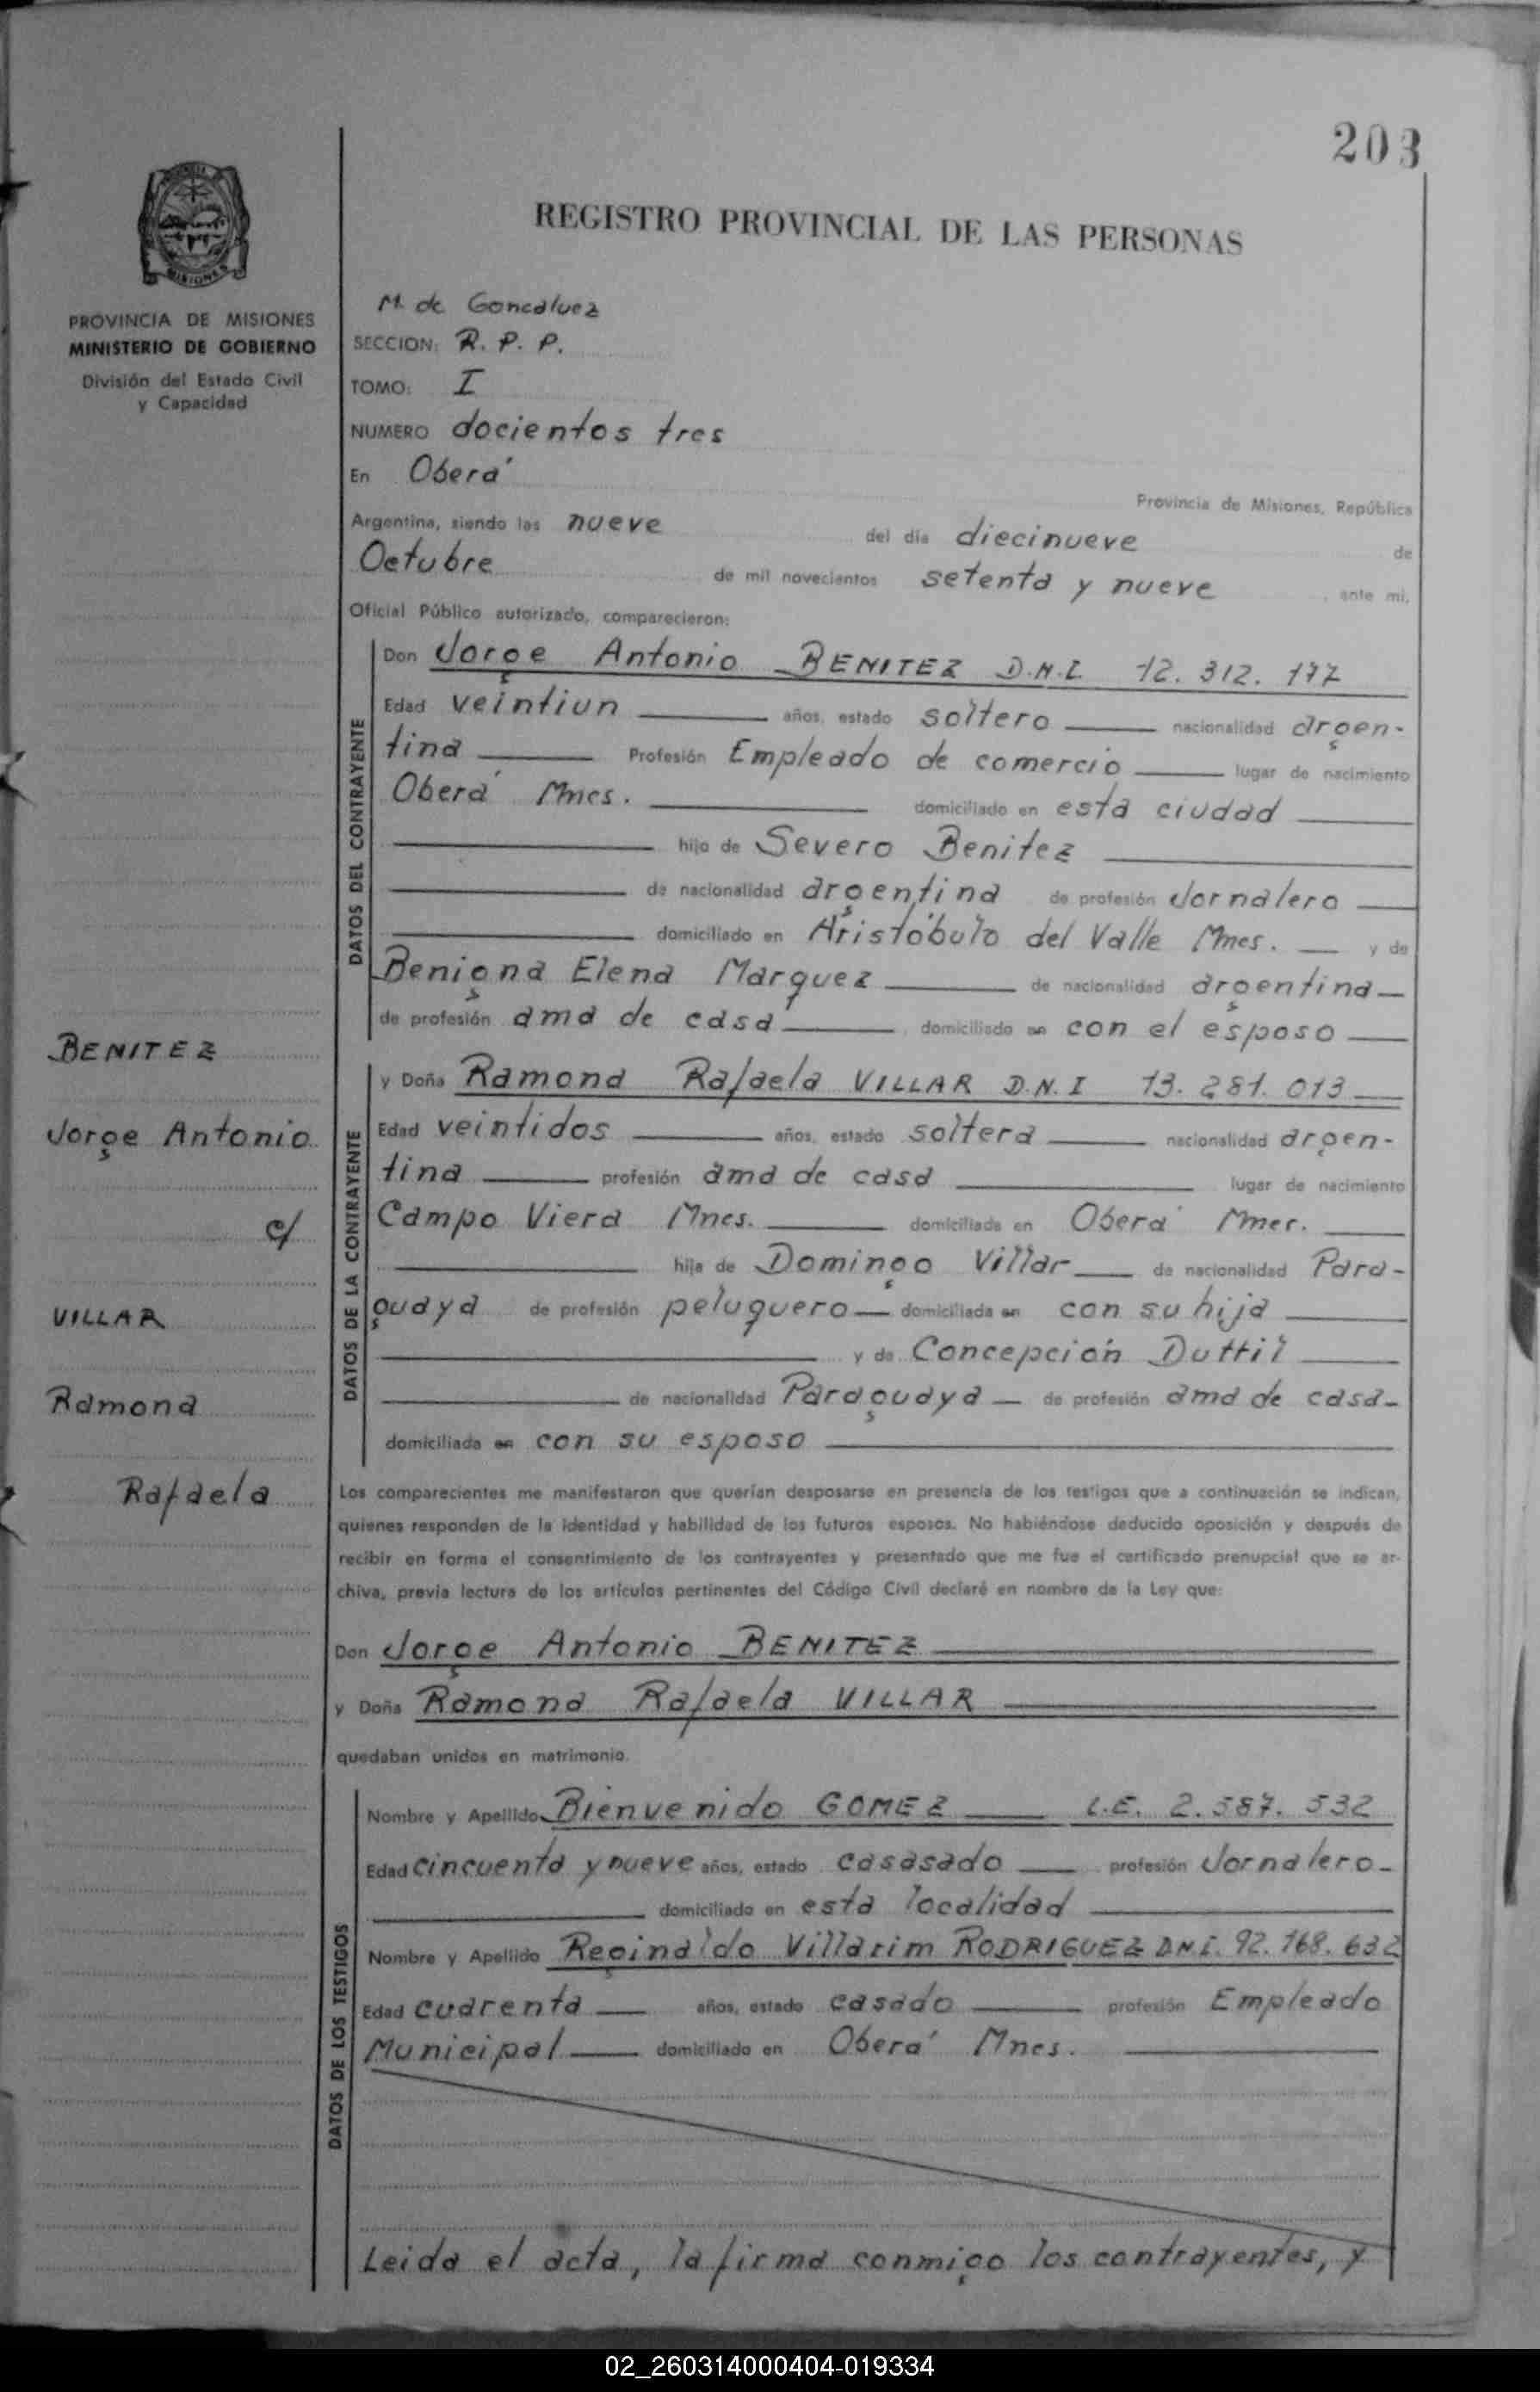 203
REGISTRO PROVINCIAL DE LAS PERSONAS
MISIONES
PROVINCIA DE MISIONES
MINISTERIO DE GOBIERNO
División del Estado Civil
y Capacidad
M. de Goncalvez
SECCION: R. P. P.
TOMO: I
NUMERO docientos tres
En Oberá
Provincia de Misiones, República
Argentina, siendo las nueve del día diecinueve de
Octubre de mil novecientos setenta y nueve, ante mi,
Oficial Público autorizado, comparecieron:
DATOS DEL CONTRAYENTE
Don Jorge Antonio BENITEZ D.N.I. 12.312.177
Edad veintiun años, estado soltero nacionalidad argen-
tina Profesión Empleado de comercio lugar de nacimiento
Oberá Mnes. domiciliado en esta ciudad
hijo de Severo Benitez
de nacionalidad argentina de profesión Jornalero
domiciliado en Aristóbulo del Valle Mnes. y de
Benigna Elena Marquez de nacionalidad argentina
de profesión ama de casa domiciliada en con el esposo
DATOS DE LA CONTRAYENTE
y Doña Ramona Rafaela VILLAR D.N.I 13.281.013
Edad veintidos años, estado soltera nacionalidad argen-
tina profesión ama de casa lugar de nacimiento
Campo Viera Mnes. domiciliada en Oberá Mnes.
hija de Domingo Villar de nacionalidad Para-
guaya de profesión peluquero domiciliada en con su hija
y de Concepción Duttil
de nacionalidad Paraguaya de profesión ama de casa
domiciliada en con su esposo
BENITEZ
Jorge Antonio
c/
VILLAR
Ramona
Rafaela
Los comparecientes me manifestaron que querían desposarse en presencia de los testigos que a continuación se indican,
quienes responden de la identidad y habilidad de los futuros esposos. No habiéndose deducido oposición y después de
recibir en forma el consentimiento de los contrayentes y presentado que me fue el certificado prenupcial que se ar-
chiva, previa lectura de los artículos pertinentes del Código Civil declaré en nombre de la Ley que:
Don Jorge Antonio BENITEZ
y Doña Ramona Rafaela VILLAR
quedaban unidos en matrimonio.
DATOS DE LOS TESTIGOS
Nombre y Apellido Bienvenido GOMEZ L.E. 2.587.532
Edad cincuenta y nueve años, estado casasado profesión Jornalero
domiciliado en esta localidad
Nombre y Apellido Reginaldo Villarim RODRIGUEZ D.N.I. 92.168.632
Edad cuarenta años, estado casado profesión Empleado
Municipal domiciliado en Oberá Mnes.
Leida el acta, la firma conmigo los contrayentes, y
02_260314000404-019334